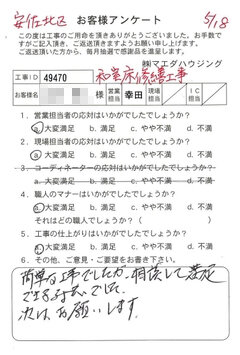 安佐北区 お客様アンケート 5/18
この度は工事のご用命を頂きありがとうございました。お手数で
すがご記入頂き、ご返送頂きますようお願い申し上げます。
ご返送頂いた方から、毎月抽選で感謝品を進呈します。
㈱マエダハウジング
工事ID 49470 和室床修繕工事
お客様 様 営業担当 幸田 現場担当 工事担当
1．営業担当者の応対はいかがでしたでしょうか?
a.大変満足 b.満足 c.やや不満 d.不満
2．現場担当者の応対はいかがでしたでしょうか?
a.大変満足 b.満足 c.やや不満 d.不満
3．コーディネーターの応対はいかがでしたでしょうか?
a.大変満足 b.満足 c.やや不満 d.不満
4．職人のマナーはいかがでしたでしょうか?
a.大変満足 b.満足 c.やや不満 d.不満
それはどの職人でしょうか?( )
5．工事の仕上がりはいかがでしたでしょうか?
a.大変満足 b.満足 c.やや不満 d.不満
6．その他、ご意見・ご要望をお書き下さい。
簡単な工事でしたが、相談して満足
できる
次は、お願いします。